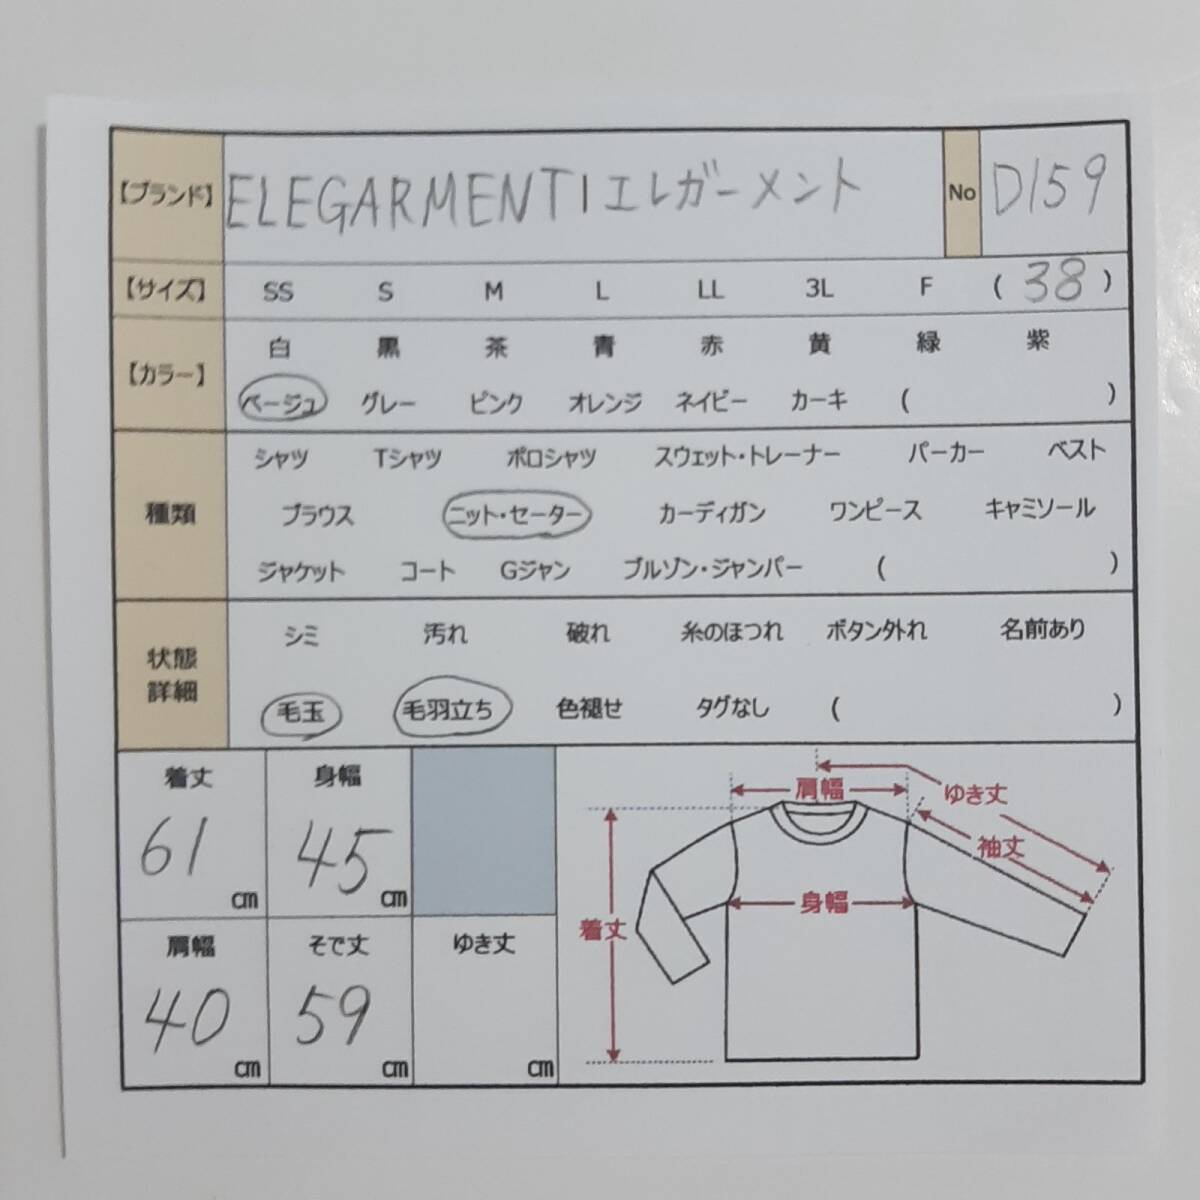 【ブランド】 ELEGARMENT | エレガーメント No D159
【サイズ】 SS S M L LL 3L F ( 38 )
【カラー】
白 黒 茶 青 赤 黄 緑 紫
ベージュ グレー ピンク オレンジ ネイビー カーキ ( )
種類
シャツ Tシャツ ポロシャツ スウェット・トレーナー パーカー ベスト
ブラウス ニット・セーター カーディガン ワンピース キャミソール
ジャケット コート Gジャン ブルゾン・ジャンパー ( )
状態
詳細
シミ 汚れ 破れ 糸のほつれ ボタン外れ 名前あり
毛玉 毛羽立ち 色褪せ タグなし ( )
着丈 身幅
61 cm 45 cm
肩幅 そで丈 ゆき丈
40 cm 59 cm cm
肩幅
ゆき丈
袖丈
身幅
着丈